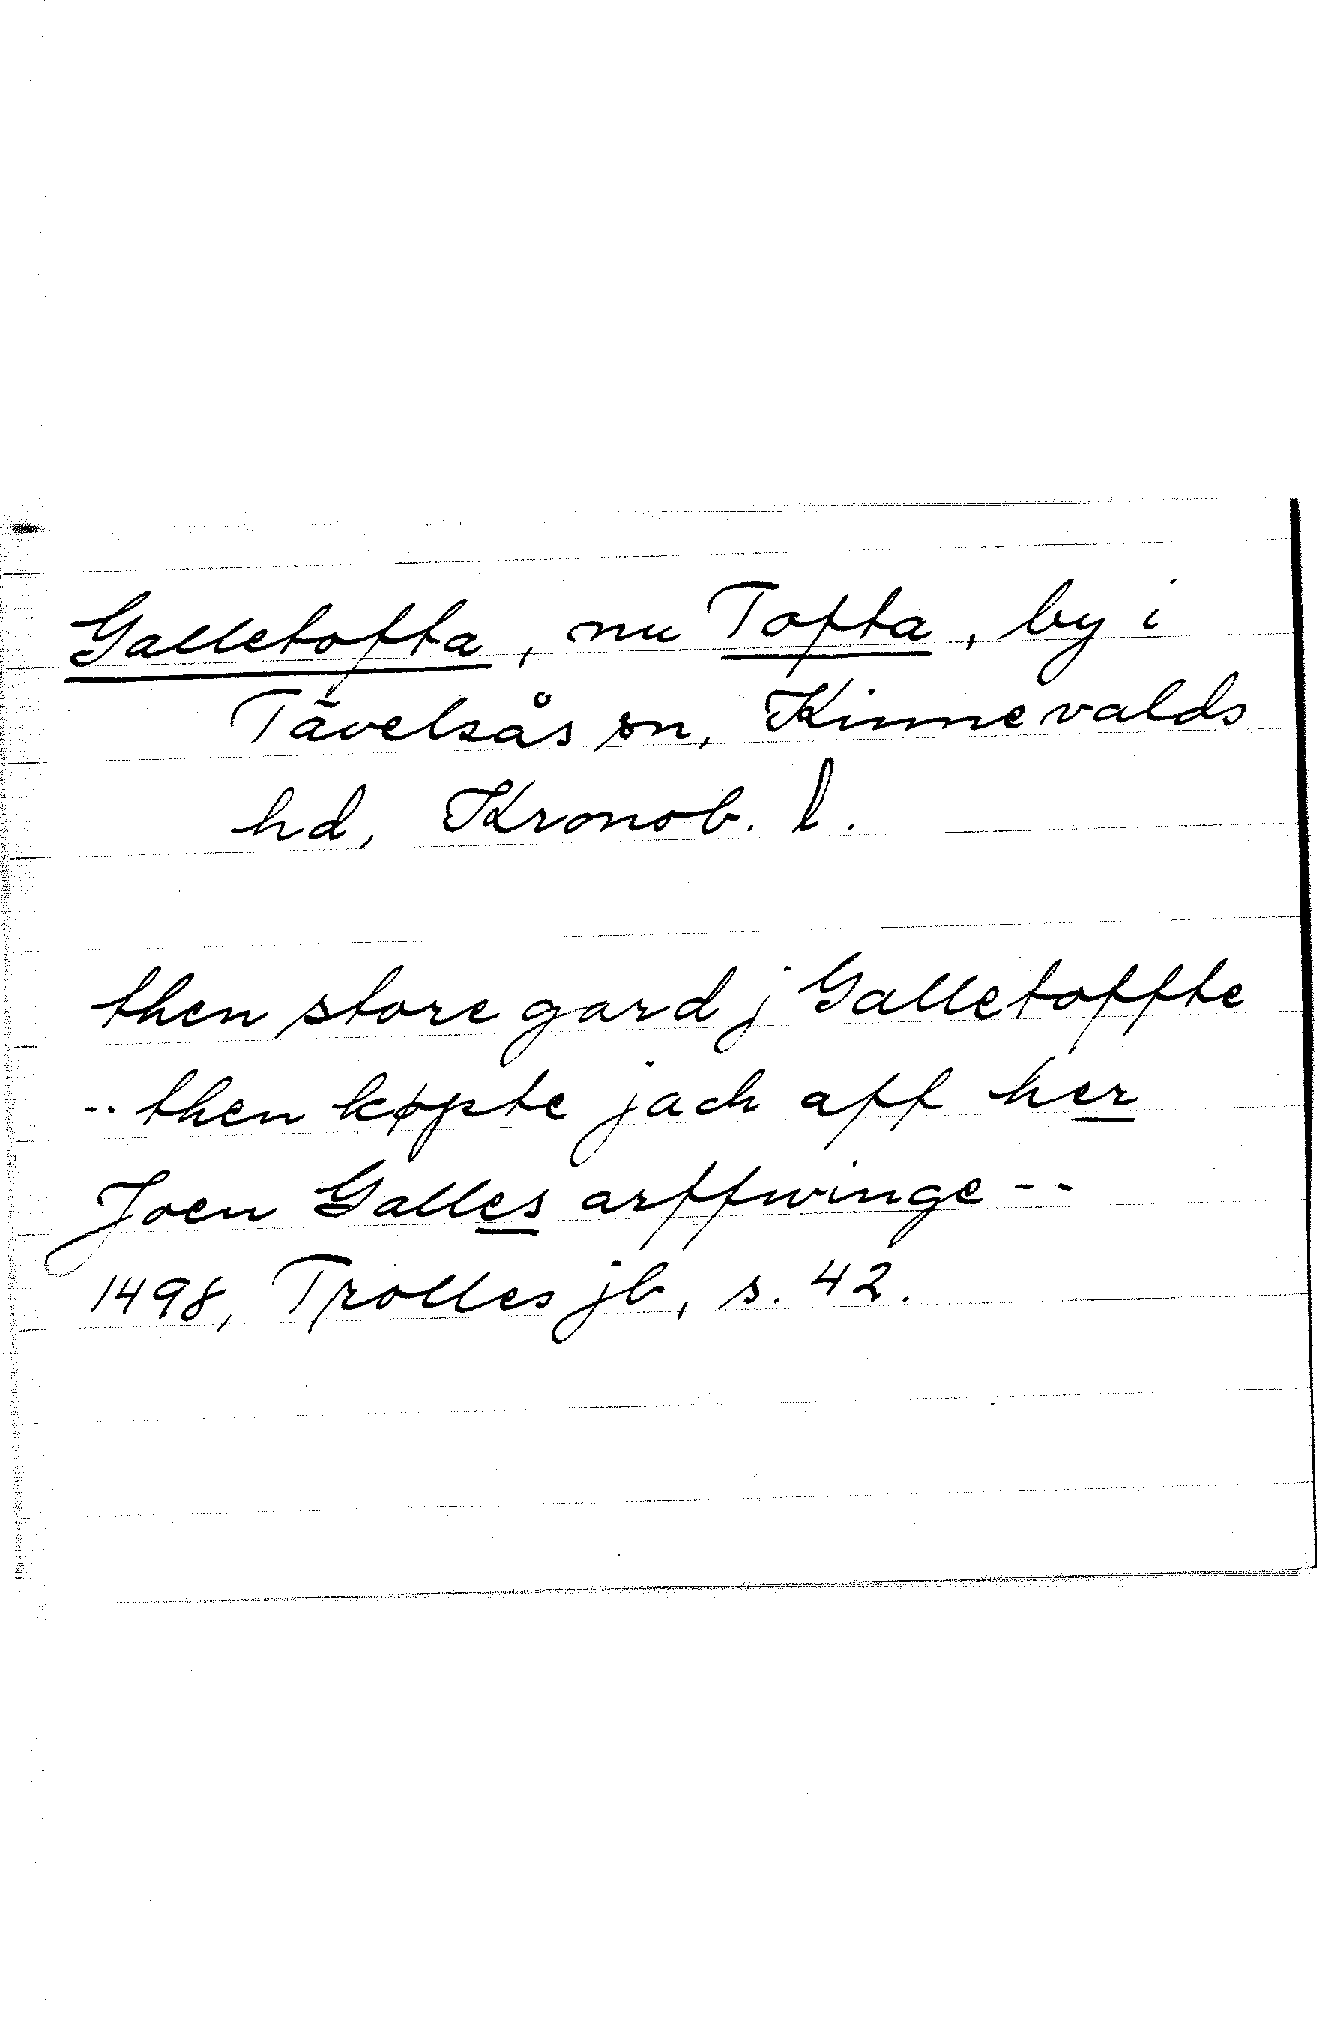 Galletofta, nu Tofta, by i
Tävelsås sn, Kinnevalds
hd, Kronob. l.
then store gard j Galletoffte
-- then køpte jach aff her
Joen Galles arffwinge --
1498, Trolles jb, s. 42.